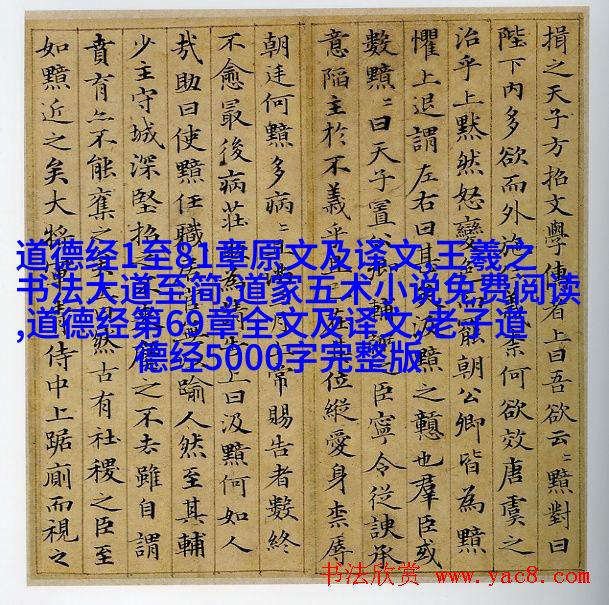 損之天子方招文學儒者上曰吾欲云〻黯對曰
陛下内多欲而外施仁義柰何欲效唐虞之
治乎上黙然怒變色而罷朝公卿皆為黯
懼上退謂左右曰甚矣汲黯之戇也羣臣或
數黯〻曰天子置公卿輔弼之臣寧令從諛承
意陥主於不義乎且已在其位縱愛身柰辱
朝廷何黯多病〻且滿三月上常賜告者數終
不愈最後病莊助為請告上曰汲黯何如人
㢤助曰使黯任職居官無以踰人然至其輔
少主守城深堅招之不來麾之不去雖自謂
賁育亦不能奪之矣上曰然古有社稷之臣至
如黯近之矣大將軍青侍中上踞廁而視之
道德经1至81章原文及译文,王羲之
书法大道至简,道家五术小说免费阅读
,道德经第69章全文及译文,老子道
德经5000字完整版
书法欣赏 www.yac8.com